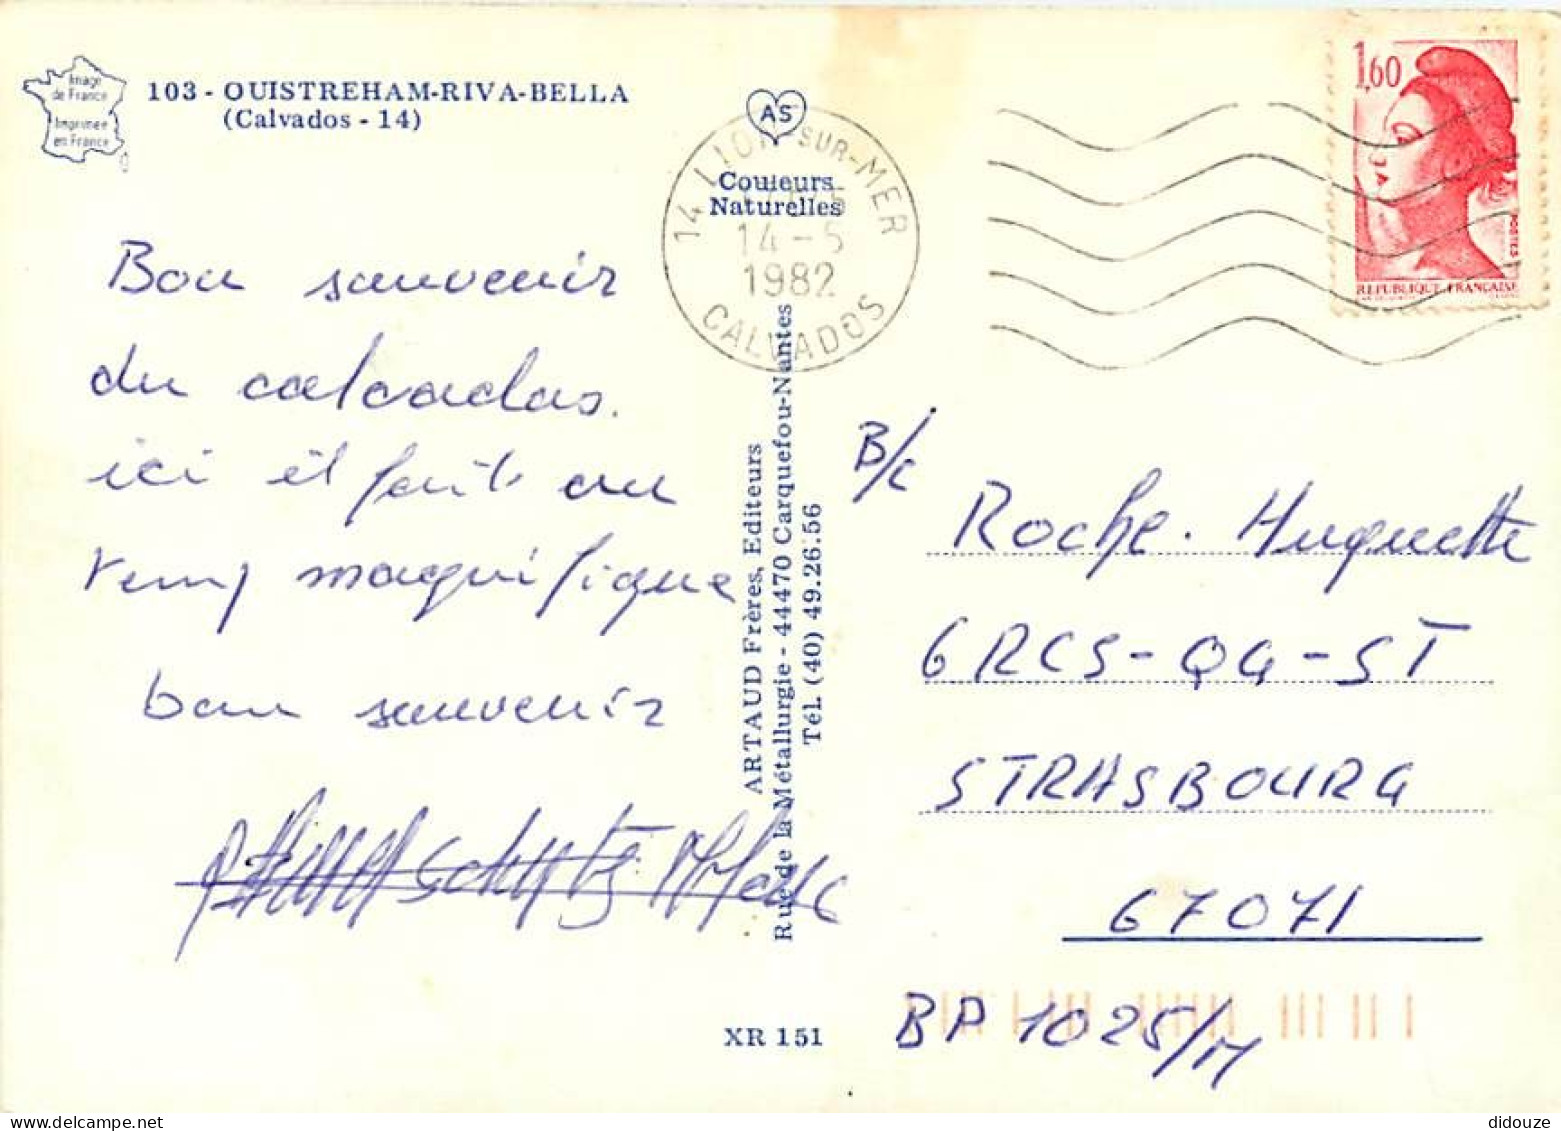 Image
de France
Imprimée
en France
103 - OUISTREHAM-RIVA-BELLA
(Calvados - 14)
AS
Couleurs
Naturelles
14 LION-SUR-MER
14 -5
1982
CALVADOS
1,60
POSTES
REPUBLIQUE FRANÇAISE
Bon souvenir
du calvados.
ici il fait un
temp magnifique
bon souvenir
ARTAUD Frères, Editeurs
Rue de la Métallurgie - 44470 Carquefou-Nantes
Tél. (40) 49.26.56
XR 151
B/C
Roche. Huguette
6 RCS-QG-ST
STRASBOURG
67071
BP 1025/M
didouze